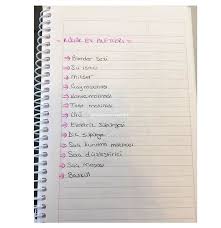 - KÜÇÜK EV ALETLERİ -
→ Blender Seti
→ Su ısıtıcı
→ Mikser
→ Çay makinesi
→ Kahve makinesi
→ Tost makinesi
→ Ütü
→ Elektrik süpürgesi
→ Dik süpürge
→ Saç kurutma makinesi
→ Saç düzleştirici
→ Saç maşası
→ Baskül